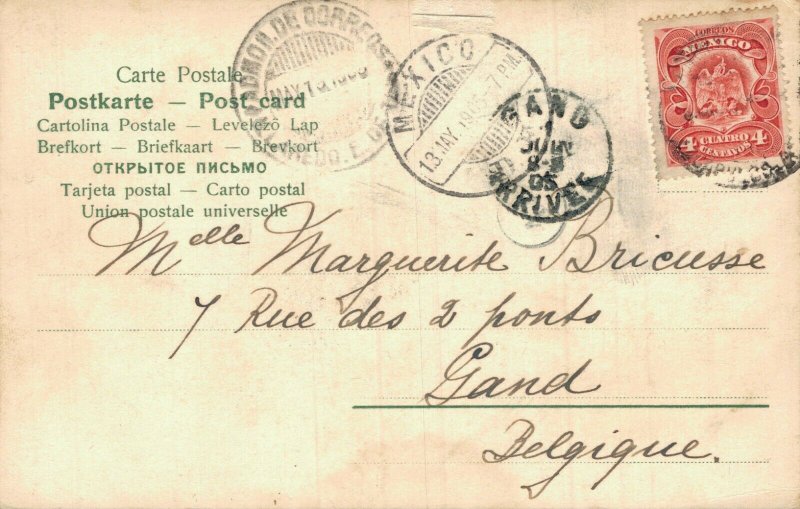 Carte Postale
Postkarte — Post card
Cartolina Postale — Levelező Lap
Brefkort — Briefkaart — Brevkort
ОТКРЫТОЕ ПИСЬМО
Tarjeta postal — Carto postal
Union postale universelle
DE CORREOS
MAY
MEXICO
13 MAY. 7 P.M.
GAND
1
JUIN
05
ARRIVEE
CORREOS
MEXICO
4 CUATRO 4
CENTAVOS
Melle Marguerite Bricusse
7 Rue des 2 ponts
Gand
Belgique.